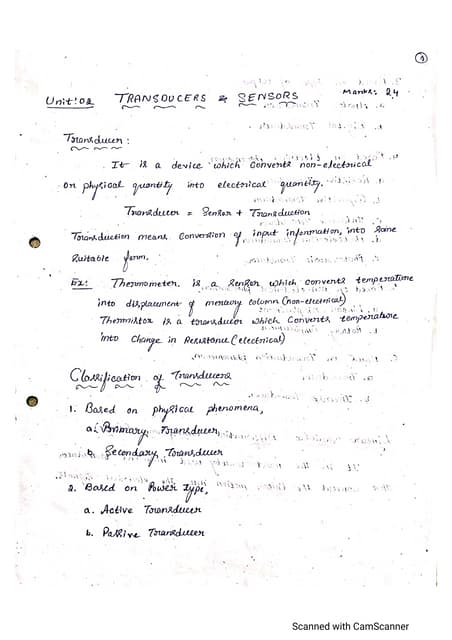 1
Unit:02 TRANSDUCERS & SENSORS Marks: 24
Transducer:
It is a device which converts non-electrical
or physical quantity into electrical quantity.
Transducer = Sensor + Transduction
Transduction means conversion of input information, into same
suitable form.
Ex: Thermometer is a sensor which converts temperature
into displacement of mercury column (non-electrical)
Thermistor is a transducer which converts temperature
into change in resistance (electrical)
Classification of Transducers
1. Based on physical phenomena,
a. Primary Transducer,
b. Secondary Transducer
2. Based on Power Type,
a. Active Transducer
b. Passive Transducer
Scanned with CamScanner